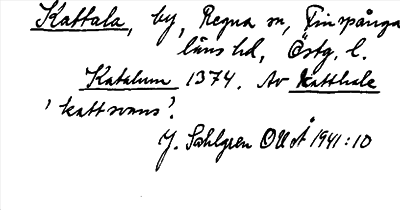 Kattala, by, Regna sn, Finspånga
läns hd, Östg. l.
Katalum 1374. Av katthale
'kattsvans'.
J. Sahlgren OUÅ 1941:10